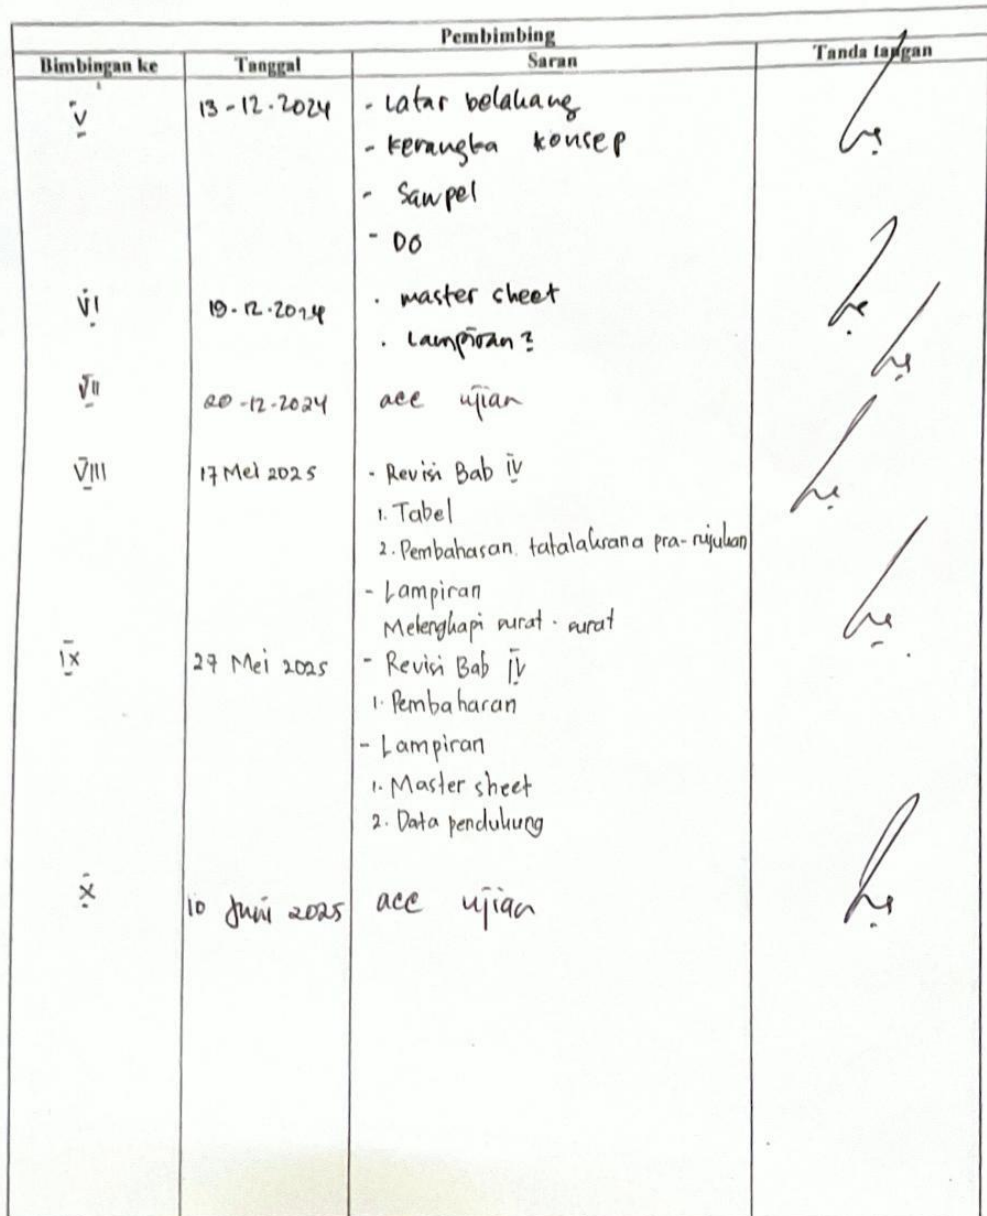 Pembimbing
Bimbingan ke Tanggal Saran Tanda tangan
V 13-12-2024 - Latar belakang
- Kerangka konsep
- Sampel
- DO
VI 19-12-2024 . master sheet
. Lampiran2
VII 20-12-2024 acc ujian
VIII 17 Mei 2025 - Revisi Bab IV
1. Tabel
2. Pembahasan tatalaksana pra-rujukan
- Lampiran
Melengkapi surat-surat
IX 27 Mei 2025 - Revisi Bab IV
1. Pembahasan
- Lampiran
1. Master sheet
2. Data pendukung
X 10 Juni 2025 acc ujian